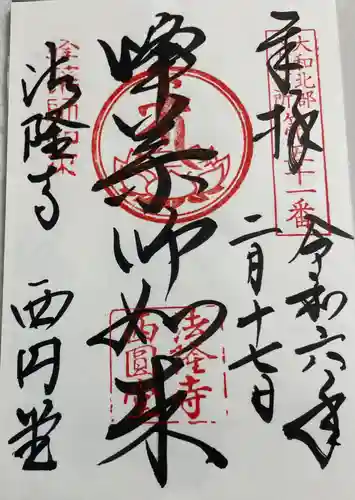 奉拝
大和北部
八十八ヶ所第五十一番
令和六年
二月十七日
峰薬師如来
法隆寺
西圓堂
法隆寺
西円堂